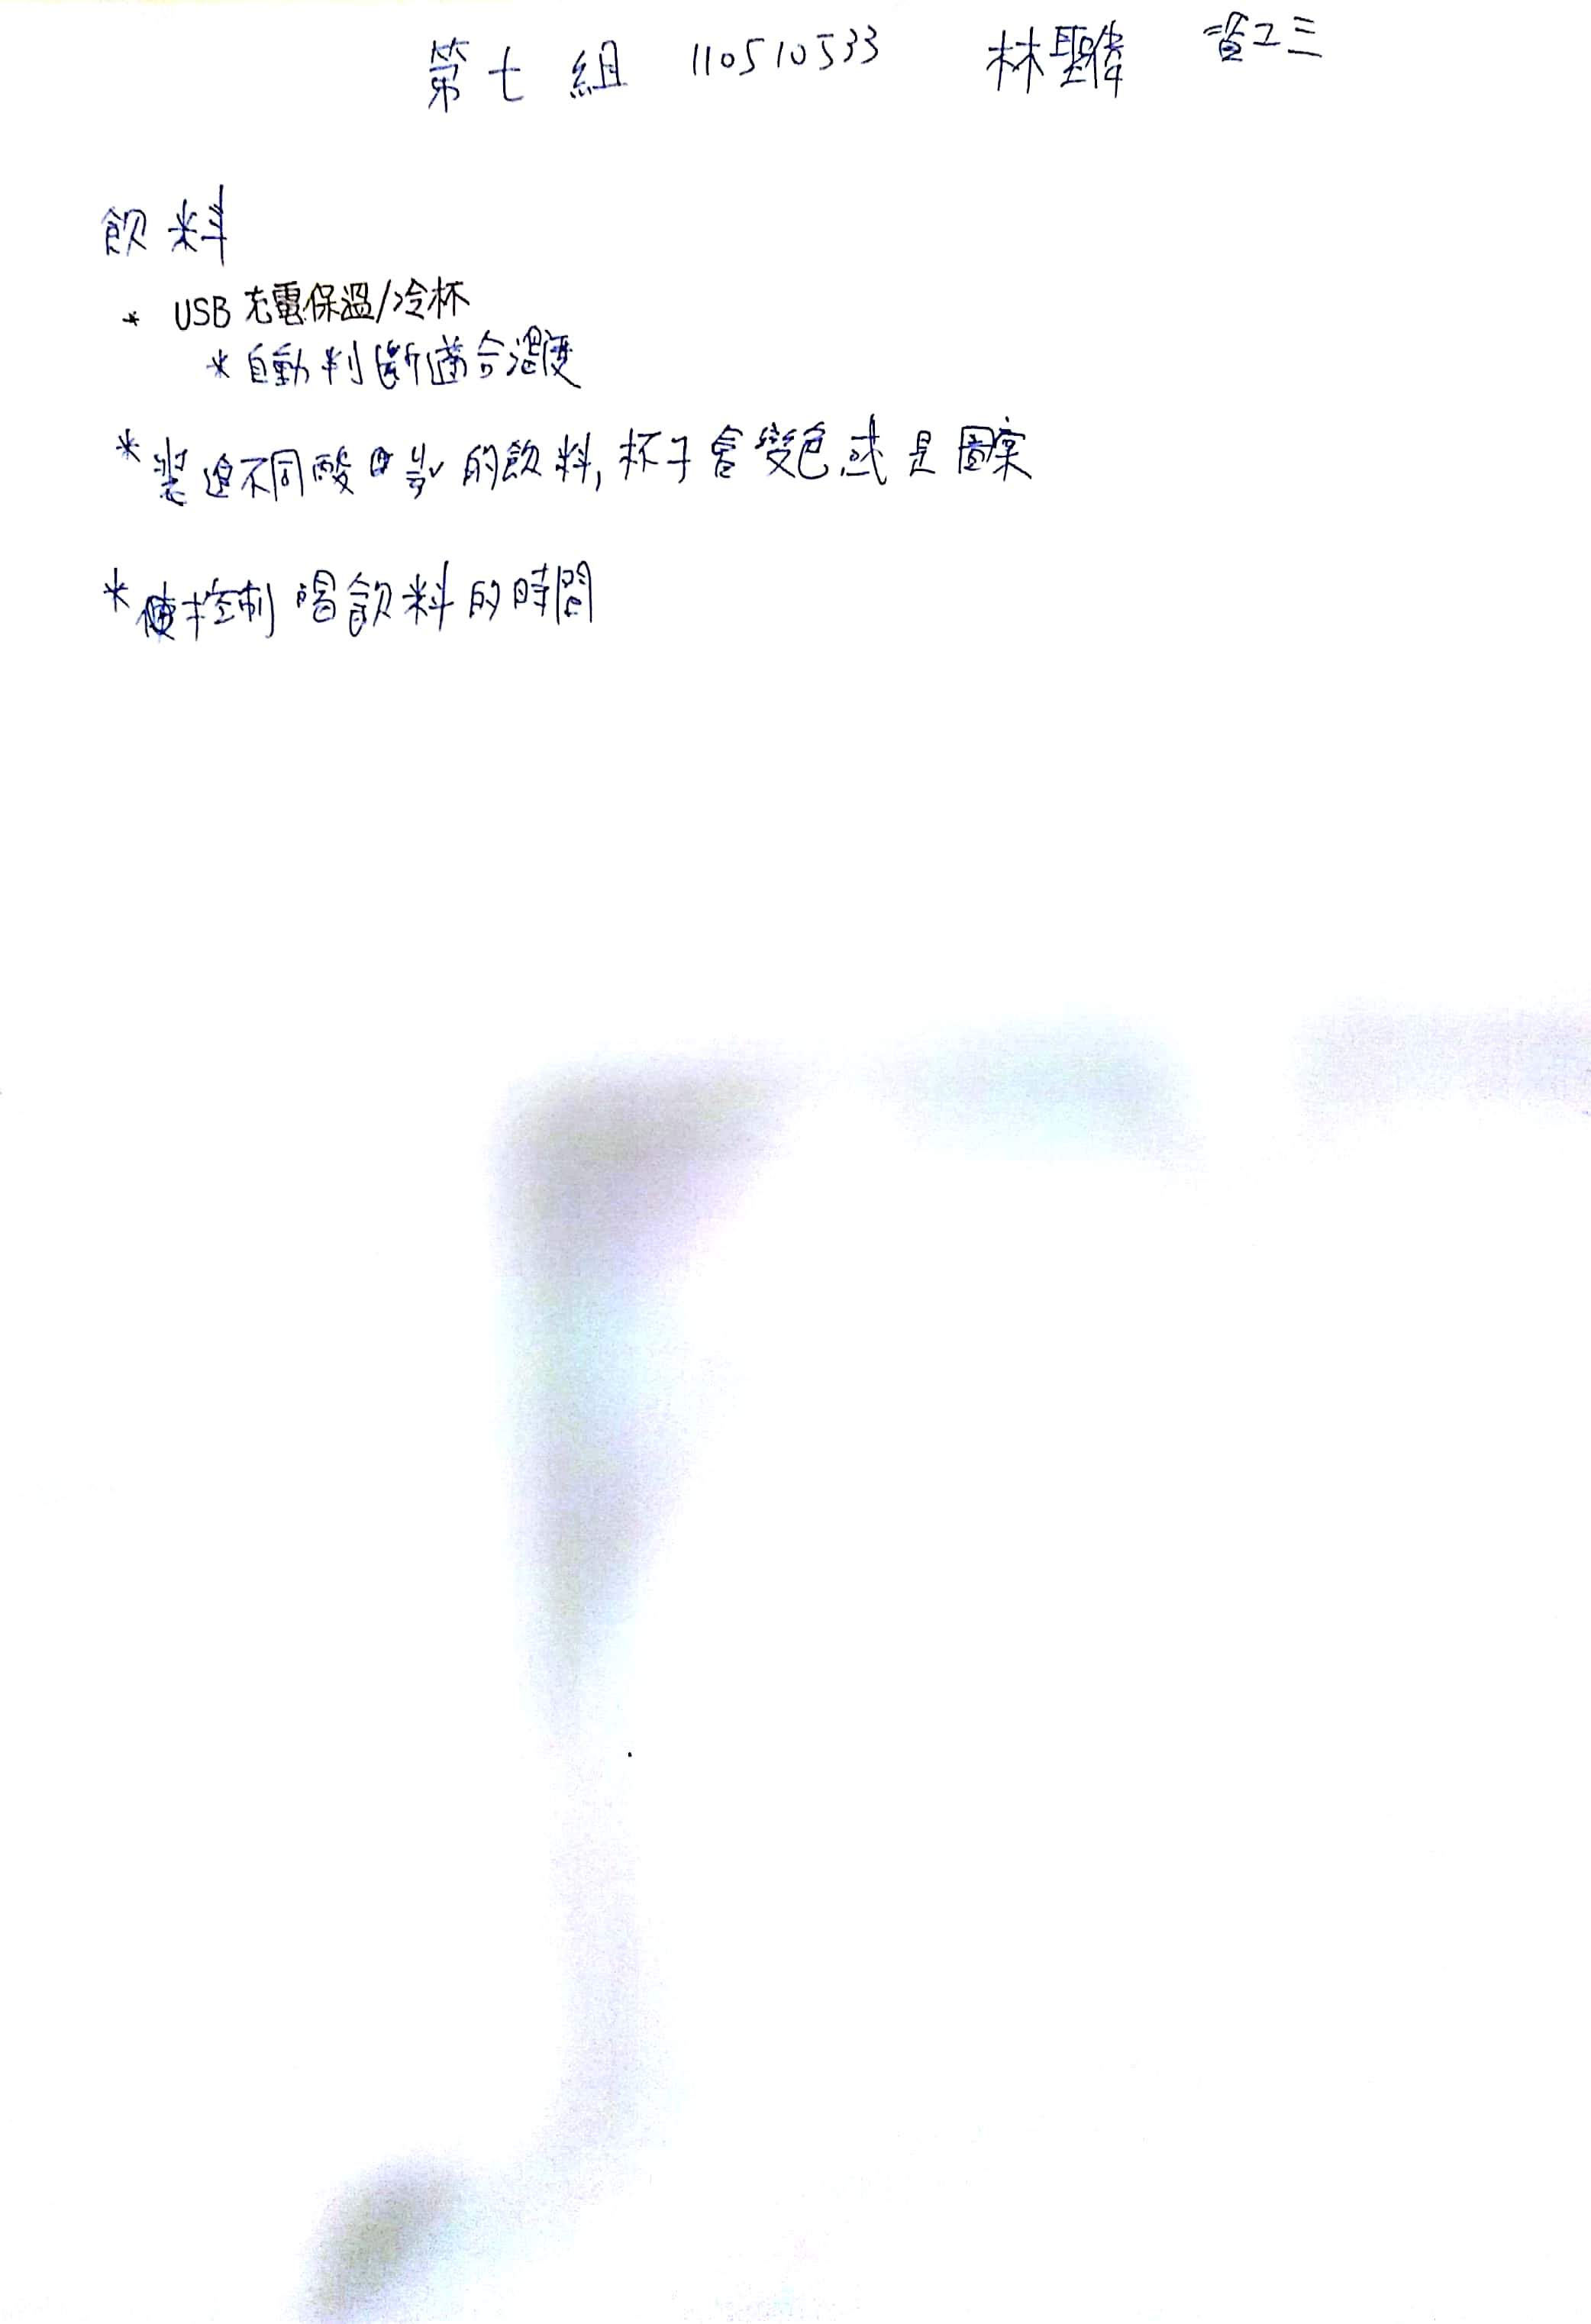 第七組 110510533 林聖偉 資工三
飲料
* USB充電保溫/冷杯
* 自動判斷適合溫度
* 裝進不同酸 的飲料, 杯子會變色或是圖案
* 控制喝飲料的時間